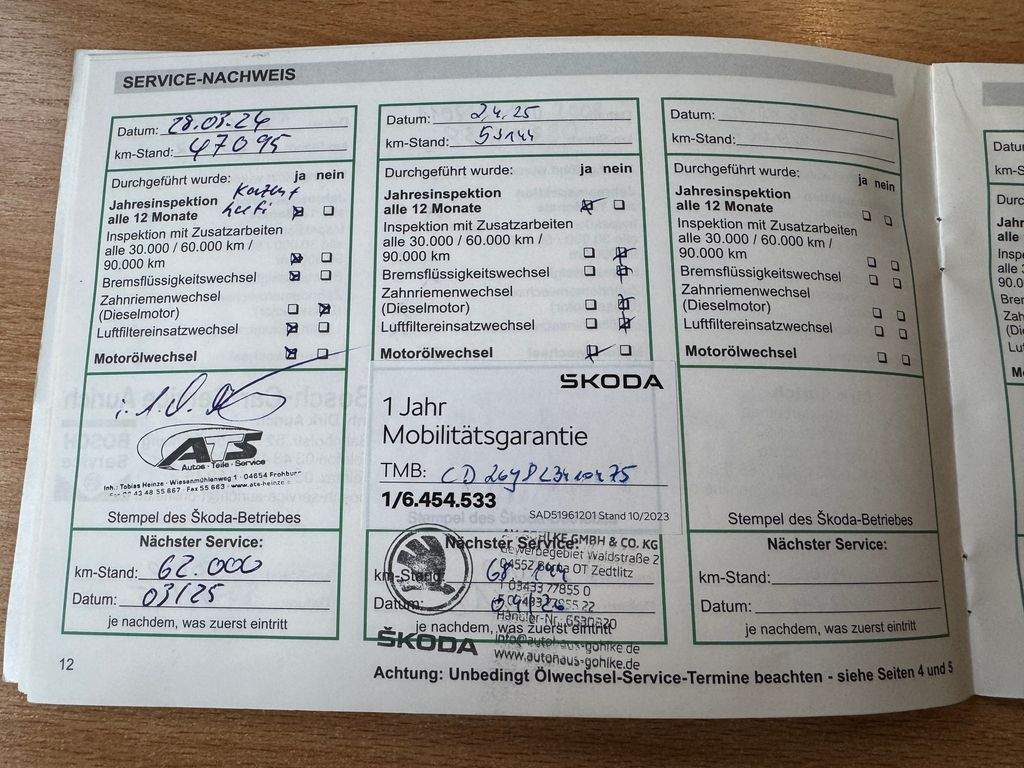 SERVICE-NACHWEIS
Datum: 28.03.24
km-Stand: 47095
Durchgeführt wurde: ja nein
Jahresinspektion
alle 12 Monate
Inspektion mit Zusatzarbeiten
alle 30.000 / 60.000 km /
90.000 km
Bremsflüssigkeitswechsel
Zahnriemenwechsel
(Dieselmotor)
Luftfiltereinsatzwechsel
Motorölwechsel
ATS
Autos · Teile · Service
Inh.: Tobias Heinze · Wiesenmühlenweg 1 · 04654 Frohburg
43 48 55 667 · Fax 55 663 · www.ats-heinze
Stempel des Škoda-Betriebes
Nächster Service:
km-Stand: 62.000
Datum: 03/25
je nachdem, was zuerst eintritt
12
Datum: 2.4.25
km-Stand: 53144
Durchgeführt wurde: ja nein
Jahresinspektion
alle 12 Monate
Inspektion mit Zusatzarbeiten
alle 30.000 / 60.000 km /
90.000 km
Bremsflüssigkeitswechsel
Zahnriemenwechsel
(Dieselmotor)
Luftfiltereinsatzwechsel
Motorölwechsel
ŠKODA
1 Jahr
Mobilitätsgarantie
TMB:
1/6.454.533
SAD51961201 Stand 10/2023
Stempel des Škoda-Betriebes
Nächster Service:
km-Stand: 68 144
Datum: 04/26
je nachdem, was zuerst eintritt
GMBH & CO. KG
Gewerbegebiet Waldstraße 2
04552 Borna OT Zedtlitz
T 03433 77855 0
Händler-Nr. 6530820
info@autohaus-gohlke.de
www.autohaus-gohlke.de
ŠKODA
Datum:
km-Stand:
Durchgeführt wurde: ja nein
Jahresinspektion
alle 12 Monate
Inspektion mit Zusatzarbeiten
alle 30.000 / 60.000 km /
90.000 km
Bremsflüssigkeitswechsel
Zahnriemenwechsel
(Dieselmotor)
Luftfiltereinsatzwechsel
Motorölwechsel
Stempel des Škoda-Betriebes
Nächster Service:
km-Stand:
Datum:
je nachdem, was zuerst eintritt
Achtung: Unbedingt Ölwechsel-Service-Termine beachten - siehe Seiten 4 und 5